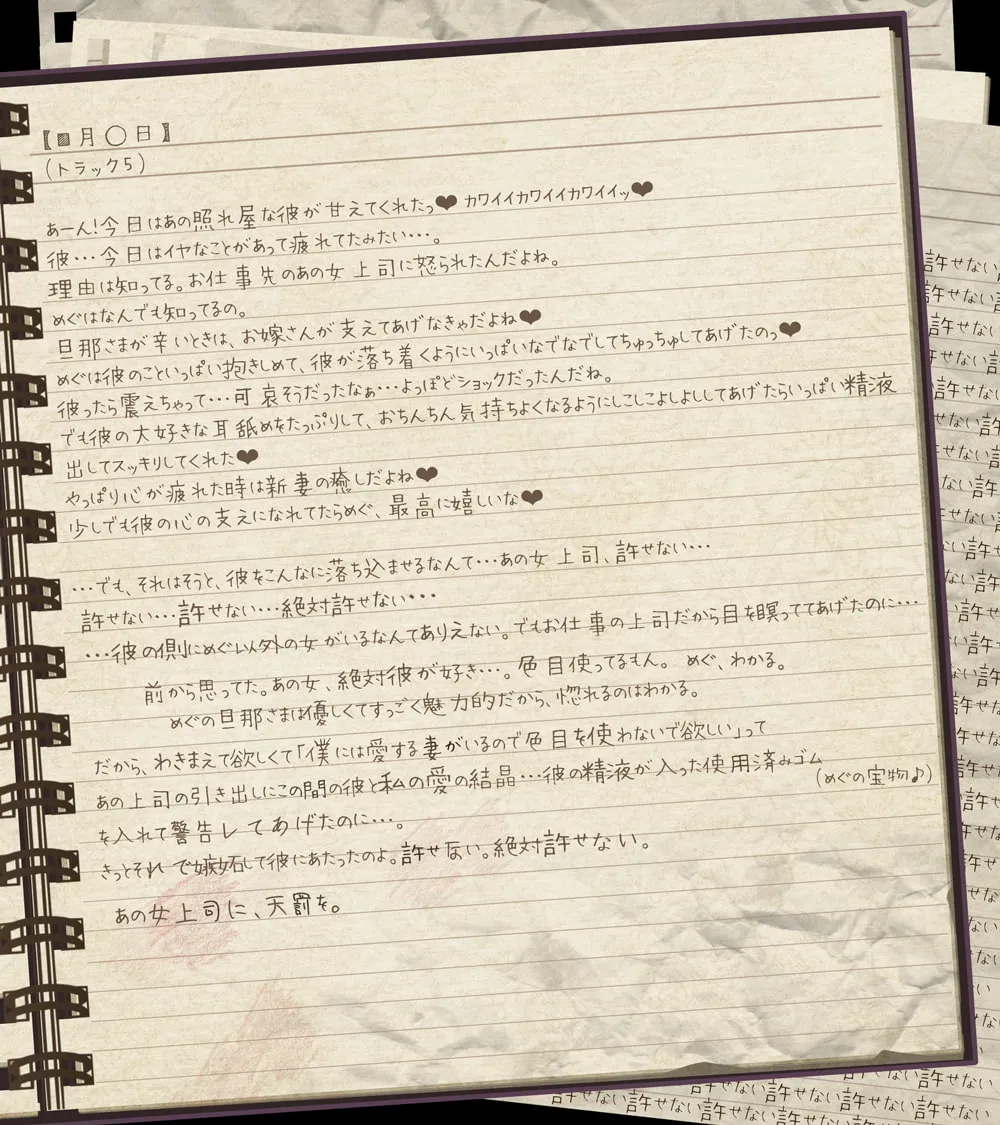 【■月〇日】
(トラック5)
あーん!今日はあの照れ屋な彼が甘えてくれたっ♥カワイイカワイイカワイイッ♥
彼…今日はイヤなことがあって疲れてたみたい…。
理由は知ってる。お仕事先のあの女上司に怒られたんだよね。
めぐはなんでも知ってるの。
旦那さまが辛いときは、お嫁さんが支えてあげなきゃだよね♥
めぐは彼のこといっぱい抱きしめて、彼が落ち着くようにいっぱいなでなでしてちゅっちゅしてあげたのっ♥
彼ったら震えちゃって…可哀そうだったなぁ…よっぽどショックだったんだね。
でも彼の大好きな耳舐めをたっぷりして、おちんちん気持ちよくなるようにしこしこよしよししてあげたらいっぱい精液
出してスッキリしてくれた♥
やっぱり心が疲れた時は新妻の癒しだよね♥
少しでも彼の心の支えになれてたらめぐ、最高に嬉しいな♥
…でも、それはそうと、彼をこんなに落ち込ませるなんて…あの女上司、許せない…
許せない…許せない…絶対許せない…
…彼の側にめぐ以外の女がいるなんてありえない。でもお仕事の上司だから目を瞑っててあげたのに…
前から思ってた。あの女、絶対彼が好き…。色目使ってるもん。めぐ、わかる。
めぐの旦那さまは優しくてすっごく魅力的だから、惚れるのはわかる。
だから、わきまえて欲しくて「僕には愛する妻がいるので色目を使わないで欲しい」って
あの上司の引き出しにこの間の彼と私の愛の結晶…彼の精液が入った使用済みゴム
(めぐの宝物♪)
を入れて警告してあげたのに…。
きっとそれで嫉妬して彼にあたったのよ。許せない。絶対許せない。
あの女上司に、天罰を。
許せない
許せない
許せない
許せない
許せない
許せない許せない許せない許せない許せない許せない
許せない許せない許せない許せない